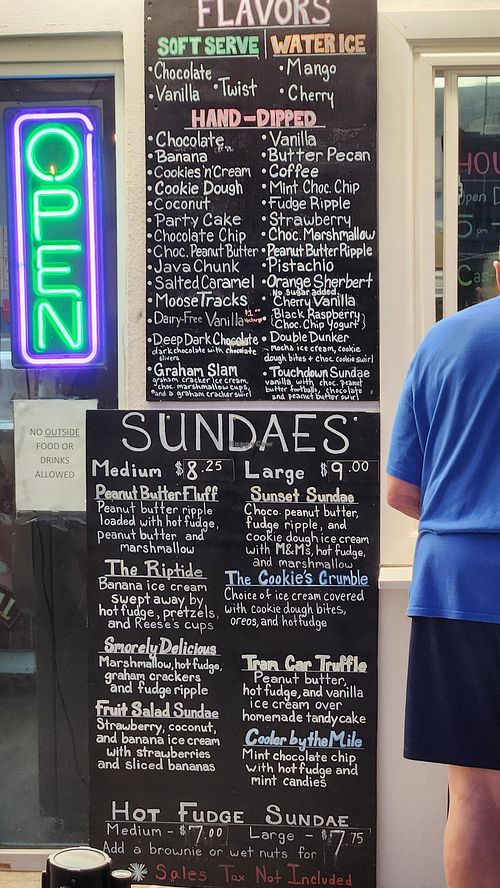 FLAVORS
SOFT SERVE WATER ICE
• Chocolate • Mango
• Vanilla • Twist • Cherry
HAND-DIPPED
• Chocolate • Vanilla
• Banana • Butter Pecan
• Cookies 'n' Cream • Coffee
• Cookie Dough • Mint Choc. Chip
• Coconut • Fudge Ripple
• Party Cake • Strawberry
• Chocolate Chip • Choc. Marshmallow
• Choc. Peanut Butter • Peanut Butter Ripple
• Java Chunk • Pistachio
• Salted Caramel • Orange Sherbert
• Moose Tracks No sugar added
Cherry Vanilla
• Dairy-Free Vanilla Black Raspberry
Choc. Chip Yogurt
• Deep Dark Chocolate • Double Dunker
dark chocolate with chocolate slivers
Mocha ice cream, cookie
dough bites + choc. cookie swirl
• Graham Slam • Touchdown Sundae
graham cracker ice cream,
choc. marshmallow cups,
and a graham cracker swirl
vanilla with choc. peanut
butter footballs, chocolate
and peanut butter swirl
OPEN
NO OUTSIDE
FOOD OR
DRINKS
ALLOWED
SUNDAES
Medium $8.25 Large $9.00
Peanut Butter Fluff
Peanut butter ripple
loaded with hot fudge,
peanut butter and
marshmallow
Sunset Sundae
Choco. peanut butter,
fudge ripple, and
cookie dough ice cream
with M&Ms, hot fudge,
and marshmallow
The Riptide
Banana ice cream
swept away by
hot fudge, pretzels,
and Reese's cups
The Cookie's Crumble
Choice of ice cream covered
with cookie dough bites,
oreos, and hot fudge
Smorely Delicious
Marshmallow, hot fudge,
graham crackers
and fudge ripple
Tram Car Truffle
Peanut butter,
hot fudge, and vanilla
ice cream over
homemade tandycake
Fruit Salad Sundae
Strawberry, coconut,
and banana ice cream
with strawberries
and sliced bananas
Cooler by the Mile
Mint chocolate chip
with hot fudge and
mint candies
HOT FUDGE SUNDAE
Medium - $7.00 Large - $7.75
Add a brownie or wet nuts for
Sales Tax Not Included
HOU
Open D
5 pm
Cas